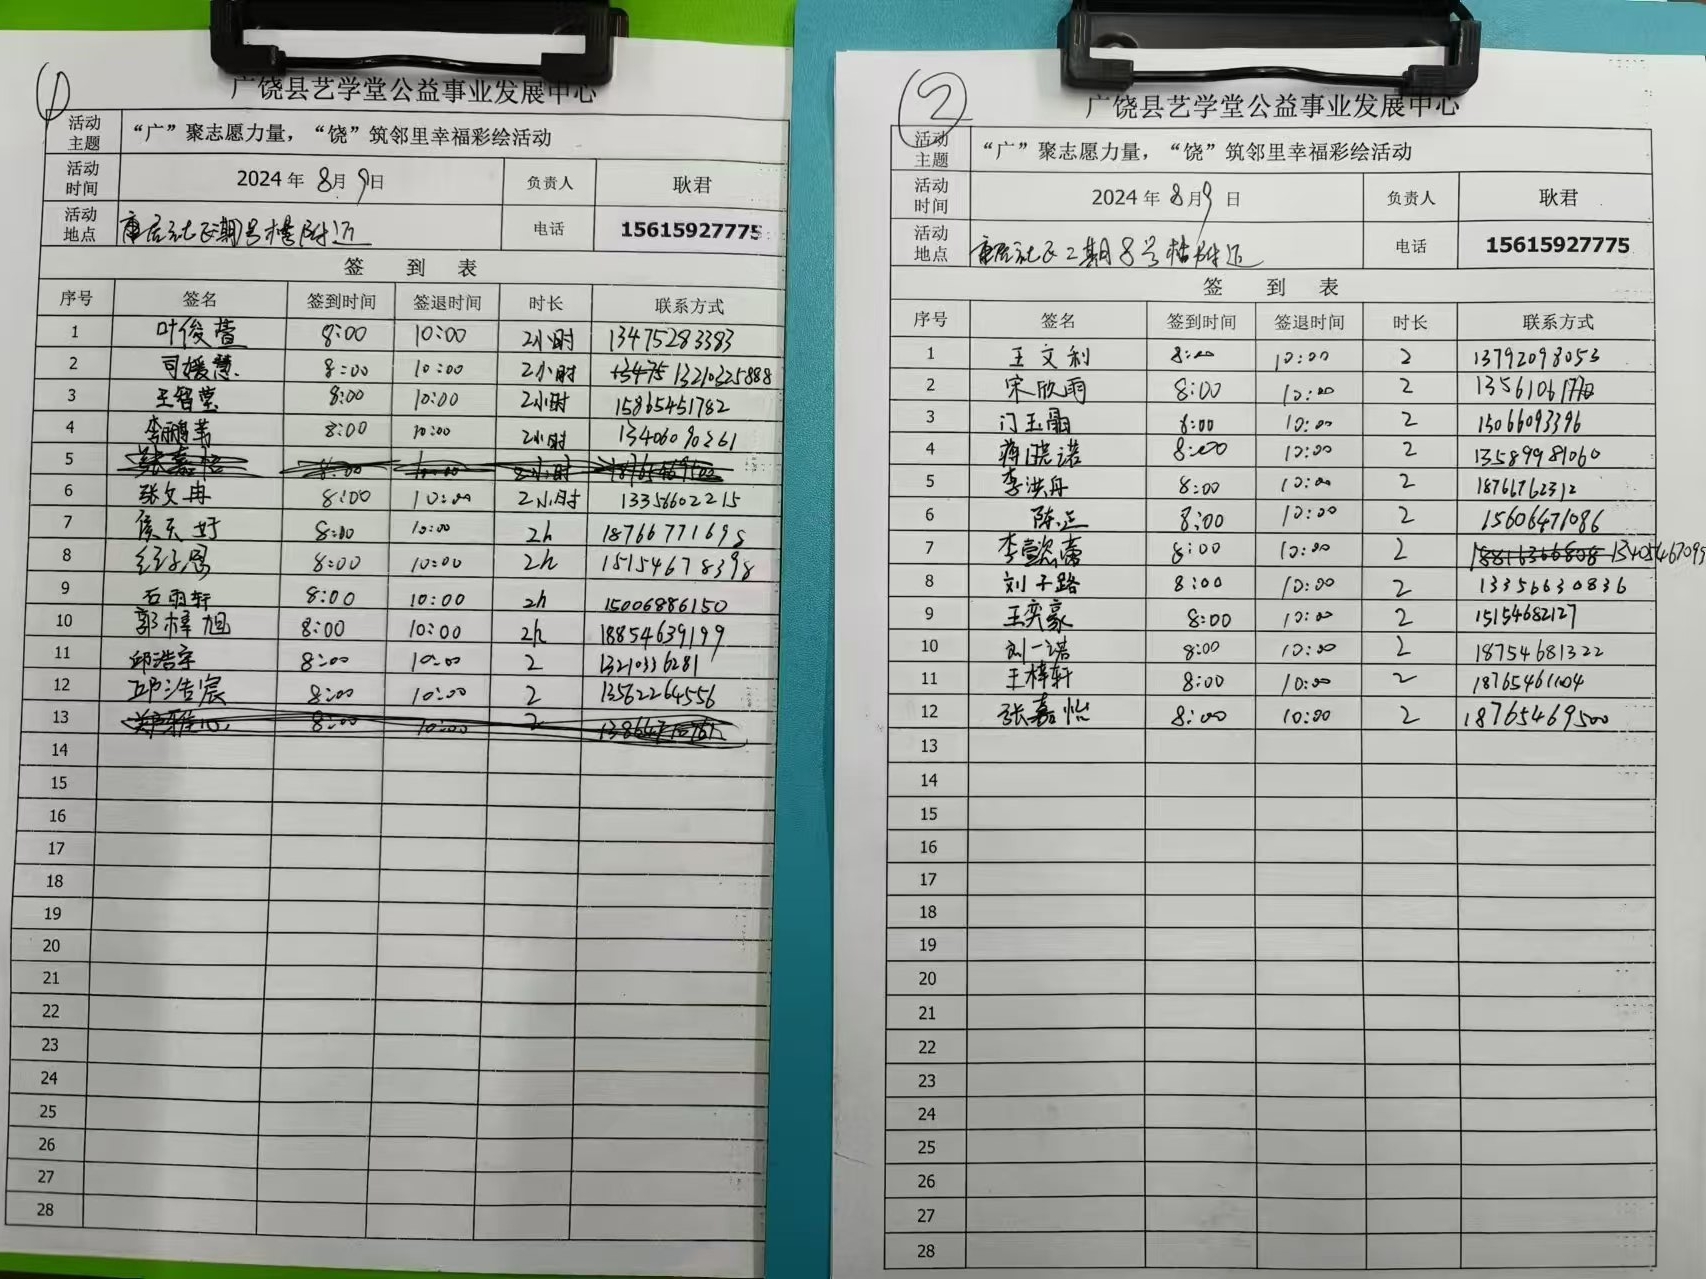 ①
广饶县艺学堂公益事业发展中心
活动主题 “广”聚志愿力量，“饶”筑邻里幸福彩绘活动
活动时间 2024 年 8月 9日 负责人 耿君
活动地点 康居社区 期8号楼附近 电话 15615927775
签 到 表
序号 签名 签到时间 签退时间 时长 联系方式
1 叶俊萱 8:00 10:00 2小时 13475283383
2 司媛慧 8:00 10:00 2小时 13210325888
3 王智莹 8:00 10:00 2小时 15865451782
4 李鹏 8:00 10:00 2小时 13406090261
5 张嘉怡 8:00 10:00 2小时
6 张文冉 8:00 10:00 2小时 13356602215
7 8:00 10:00 2h 18766771698
8 8:00 10:00 2h 15154678398
9 石雨轩 8:00 10:00 2h 15006886150
10 郭梓旭 8:00 10:00 2h 18854639199
11 邱浩宇 8:00 10:00 2 13210336281
12 邱浩宸 8:00 10:00 2 13562264556
13 郑雅心 8:00 10:00 2
14
15
16
17
18
19
20
21
22
23
24
25
26
27
28
②
广饶县艺学堂公益事业发展中心
活动主题 “广”聚志愿力量，“饶”筑邻里幸福彩绘活动
活动时间 2024 年 8月9 日 负责人 耿君
活动地点 康居社区二期8号楼附近 电话 15615927775
签 到 表
序号 签名 签到时间 签退时间 时长 联系方式
1 王文利 8:00 10:00 2 13792098053
2 宋欣雨 8:00 10:00 2
3 门玉 8:00 10:00 2 15066093396
4 蒋晓诺 8:00 10:00 2 13589981060
5 李洪舟 8:00 10:00 2 18766762312
6 陈正 8:00 10:00 2 15606471086
7 李懿 8:00 10:00 2 18816366808 13405467095
8 刘子路 8:00 10:00 2 13356630836
9 王奕豪 8:00 10:00 2 15154682127
10 刘一诺 8:00 10:00 2 18754681322
11 王梓轩 8:00 10:00 2 18765461104
12 张嘉怡 8:00 10:00 2 18765469500
13
14
15
16
17
18
19
20
21
22
23
24
25
26
27
28